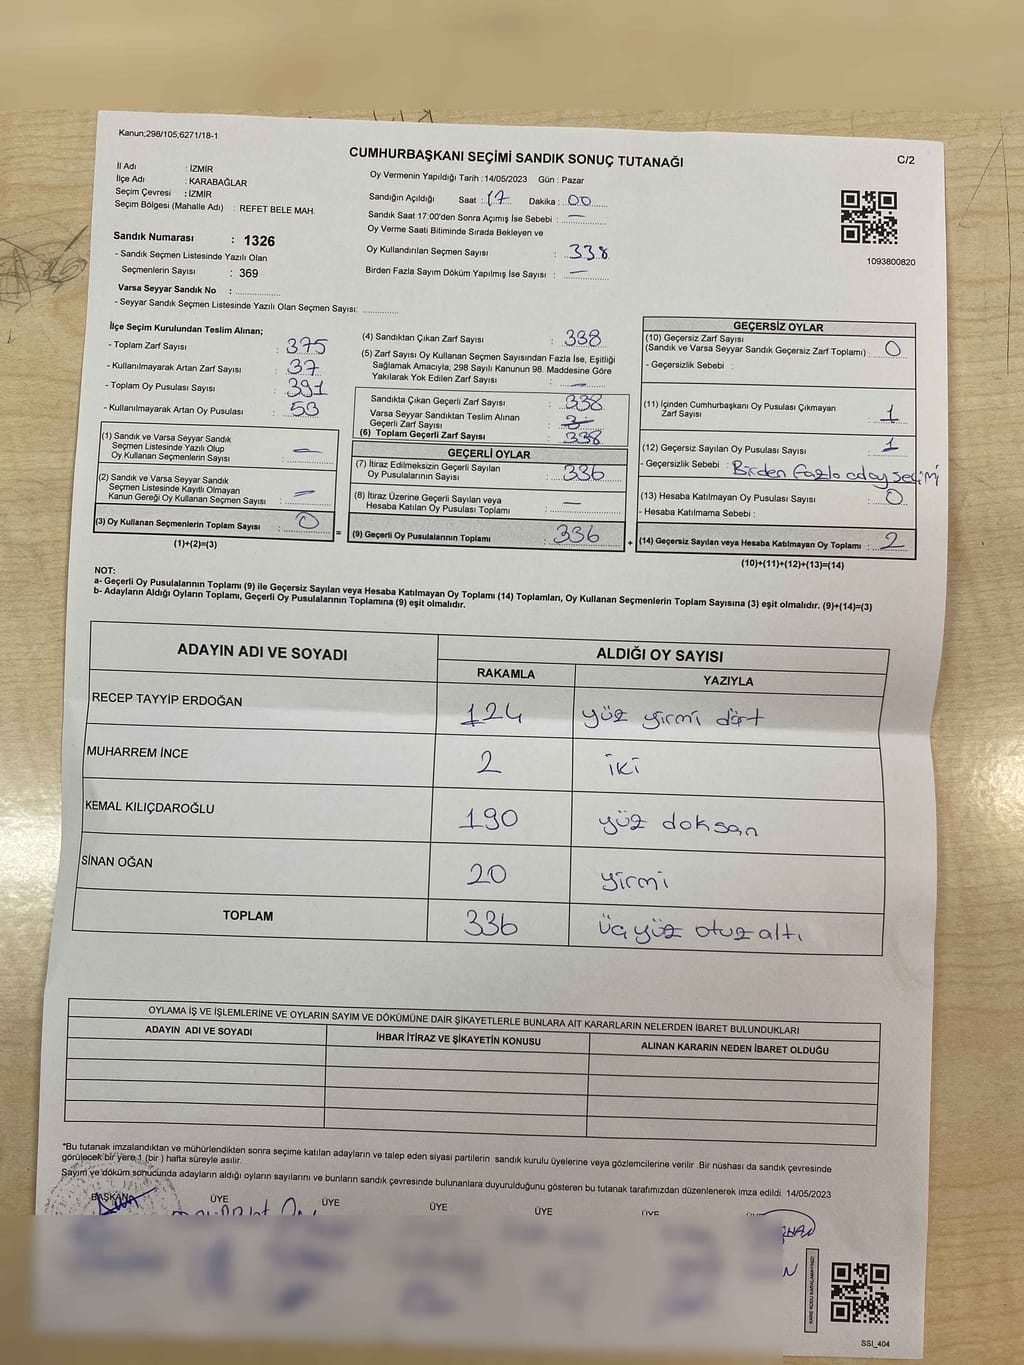 Kanun;298/105,6271/18-1
CUMHURBAŞKANI SEÇİMİ SANDIK SONUÇ TUTANAĞI
C/2
İl Adı : İZMİR
İlçe Adı : KARABAĞLAR
Seçim Çevresi : İZMİR
Seçim Bölgesi (Mahalle Adı) : REFET BELE MAH.
Sandık Numarası : 1326
- Sandık Seçmen Listesinde Yazılı Olan
Seçmenlerin Sayısı : 369
Varsa Seyyar Sandık No :
- Seyyar Sandık Seçmen Listesinde Yazılı Olan Seçmen Sayısı:
Oy Vermenin Yapıldığı Tarih :14/05/2023 Gün : Pazar
Sandığın Açıldığı Saat : 17 Dakika : 00
Sandık Saat 17:00'den Sonra Açımış İse Sebebi : —
Oy Verme Saati Bitiminde Sırada Bekleyen ve
Oy Kullandırılan Seçmen Sayısı : 338
Birden Fazla Sayım Döküm Yapılmış İse Sayısı : —
1093800820
İlçe Seçim Kurulundan Teslim Alınan;
- Toplam Zarf Sayısı : 375
- Kullanılmayarak Artan Zarf Sayısı : 37
- Toplam Oy Pusulası Sayısı : 391
- Kullanılmayarak Artan Oy Pusulası : 53
(1) Sandık ve Varsa Seyyar Sandık
Seçmen Listesinde Yazılı Olup
Oy Kullanan Seçmenlerin Sayısı : —
(2) Sandık ve Varsa Seyyar Sandık
Seçmen Listesinde Kayıtlı Olmayan
Kanun Gereği Oy Kullanan Seçmen Sayısı : —
(3) Oy Kullanan Seçmenlerin Toplam Sayısı : 0
(1)+(2)=(3)
(4) Sandıktan Çıkan Zarf Sayısı : 338
(5) Zarf Sayısı Oy Kullanan Seçmen Sayısından Fazla İse, Eşitliği
Sağlamak Amacıyla, 298 Sayılı Kanunun 98. Maddesine Göre
Yakılarak Yok Edilen Zarf Sayısı : —
Sandıkta Çıkan Geçerli Zarf Sayısı : 338
Varsa Seyyar Sandıktan Teslim Alınan
Geçerli Zarf Sayısı :
(6) Toplam Geçerli Zarf Sayısı : 338
GEÇERLİ OYLAR
(7) İtiraz Edilmeksizin Geçerli Sayılan
Oy Pusulalarının Sayısı : 336
(8) İtiraz Üzerine Geçerli Sayılan veya
Hesaba Katılan Oy Pusulası Toplamı : —
= (9) Geçerli Oy Pusulalarının Toplamı : 336
GEÇERSİZ OYLAR
(10) Geçersiz Zarf Sayısı
(Sandık ve Varsa Seyyar Sandık Geçersiz Zarf Toplamı) : 0
- Geçersizlik Sebebi :
(11) İçinden Cumhurbaşkanı Oy Pusulası Çıkmayan
Zarf Sayısı : 1
(12) Geçersiz Sayılan Oy Pusulası Sayısı : 1
- Geçersizlik Sebebi : Birden fazla aday seçimi
(13) Hesaba Katılmayan Oy Pusulası Sayısı : 0
- Hesaba Katılmama Sebebi :
+ (14) Geçersiz Sayılan veya Hesaba Katılmayan Oy Toplamı : 2
(10)+(11)+(12)+(13)=(14)
NOT:
a- Geçerli Oy Pusulalarının Toplamı (9) ile Geçersiz Sayılan veya Hesaba Katılmayan Oy Toplamı (14) Toplamları, Oy Kullanan Seçmenlerin Toplam Sayısına (3) eşit olmalıdır. (9)+(14)=(3)
b- Adayların Aldığı Oyların Toplamı, Geçerli Oy Pusulalarının Toplamına (9) eşit olmalıdır.
ADAYIN ADI VE SOYADI
ALDIĞI OY SAYISI
RAKAMLA YAZIYLA
RECEP TAYYİP ERDOĞAN 124 yüz yirmi dört
MUHARREM İNCE 2 iki
KEMAL KILIÇDAROĞLU 190 yüz doksan
SİNAN OĞAN 20 yirmi
TOPLAM 336 üçyüz otuz altı
OYLAMA İŞ VE İŞLEMLERİNE VE OYLARIN SAYIM VE DÖKÜMÜNE DAİR ŞİKAYETLERLE BUNLARA AİT KARARLARIN NELERDEN İBARET BULUNDUKLARI
ADAYIN ADI VE SOYADI İHBAR İTİRAZ VE ŞİKAYETİN KONUSU ALINAN KARARIN NEDEN İBARET OLDUĞU
*Bu tutanak imzalandıktan ve mühürlendikten sonra seçime katılan adayların ve talep eden siyasi partilerin sandık kurulu üyelerine veya gözlemcilerine verilir .Bir nüshası da sandık çevresinde
görülecek bir yere 1 (bir ) hafta süreyle asılır.
Sayım ve döküm sonucunda adayların aldığı oyların sayılarını ve bunların sandık çevresinde bulunanlara duyurulduğunu gösteren bu tutanak tarafımızdan düzenlenerek imza edildi. 14/05/2023
BAŞKAN ÜYE ÜYE ÜYE ÜYE ÜYE
KARE KODU KARALAMAYINIZ!
SSI_404